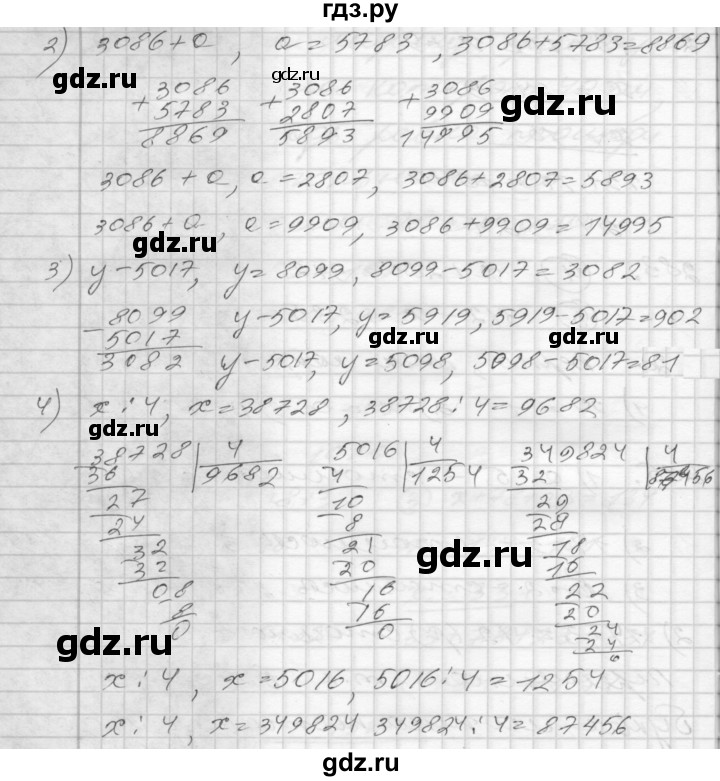 гдз.ру
2) 3086+a, a=5783, 3086+5783=8869
gdz.ru
gdz.ru
+3086 +3086 +3086
5783 2807 9909
gdz.ru
8869 5893 14995
3086+a, a=2807, 3086+2807=5893
3086+a, a=9909, 3086+9909=14995
gdz.ru
3) y-5017, y=8099, 8099-5017=3082
-8099 y-5017, y=5919, 5919-5017=902
5017
gdz.ru
gdz.ru
3082 y-5017, y=5098, 5098-5017=81
4) x:4, x=38728, 38728:4=9682
-38728 4 -5016 4 -349824 4
36 9682 4 1254 32 87456
-27 -10 -29
24 8 28
-32 -21 -18
32 20 16
gdz.ru
08 -16 -22
8 16 20
0 0 -24
24
0
gdz.ru
x:4, x=5016, 5016:4=1254
x:4, x=349824 349824:4=87456
gdz.ru
gdz.ru